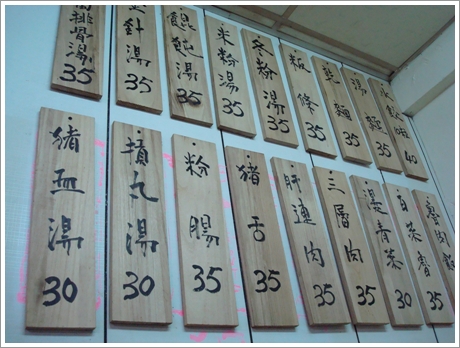 排骨湯 35
金針湯 35
餛飩湯 35
米粉湯 35
冬粉湯 35
粄條 35
乾麵 35
湯麵 35
40
猪血湯 30
摃丸湯 30
粉腸 35
猪舌 35
肝連肉 35
三層肉 35
燙青菜 35
白菜魯 30
魯肉飯